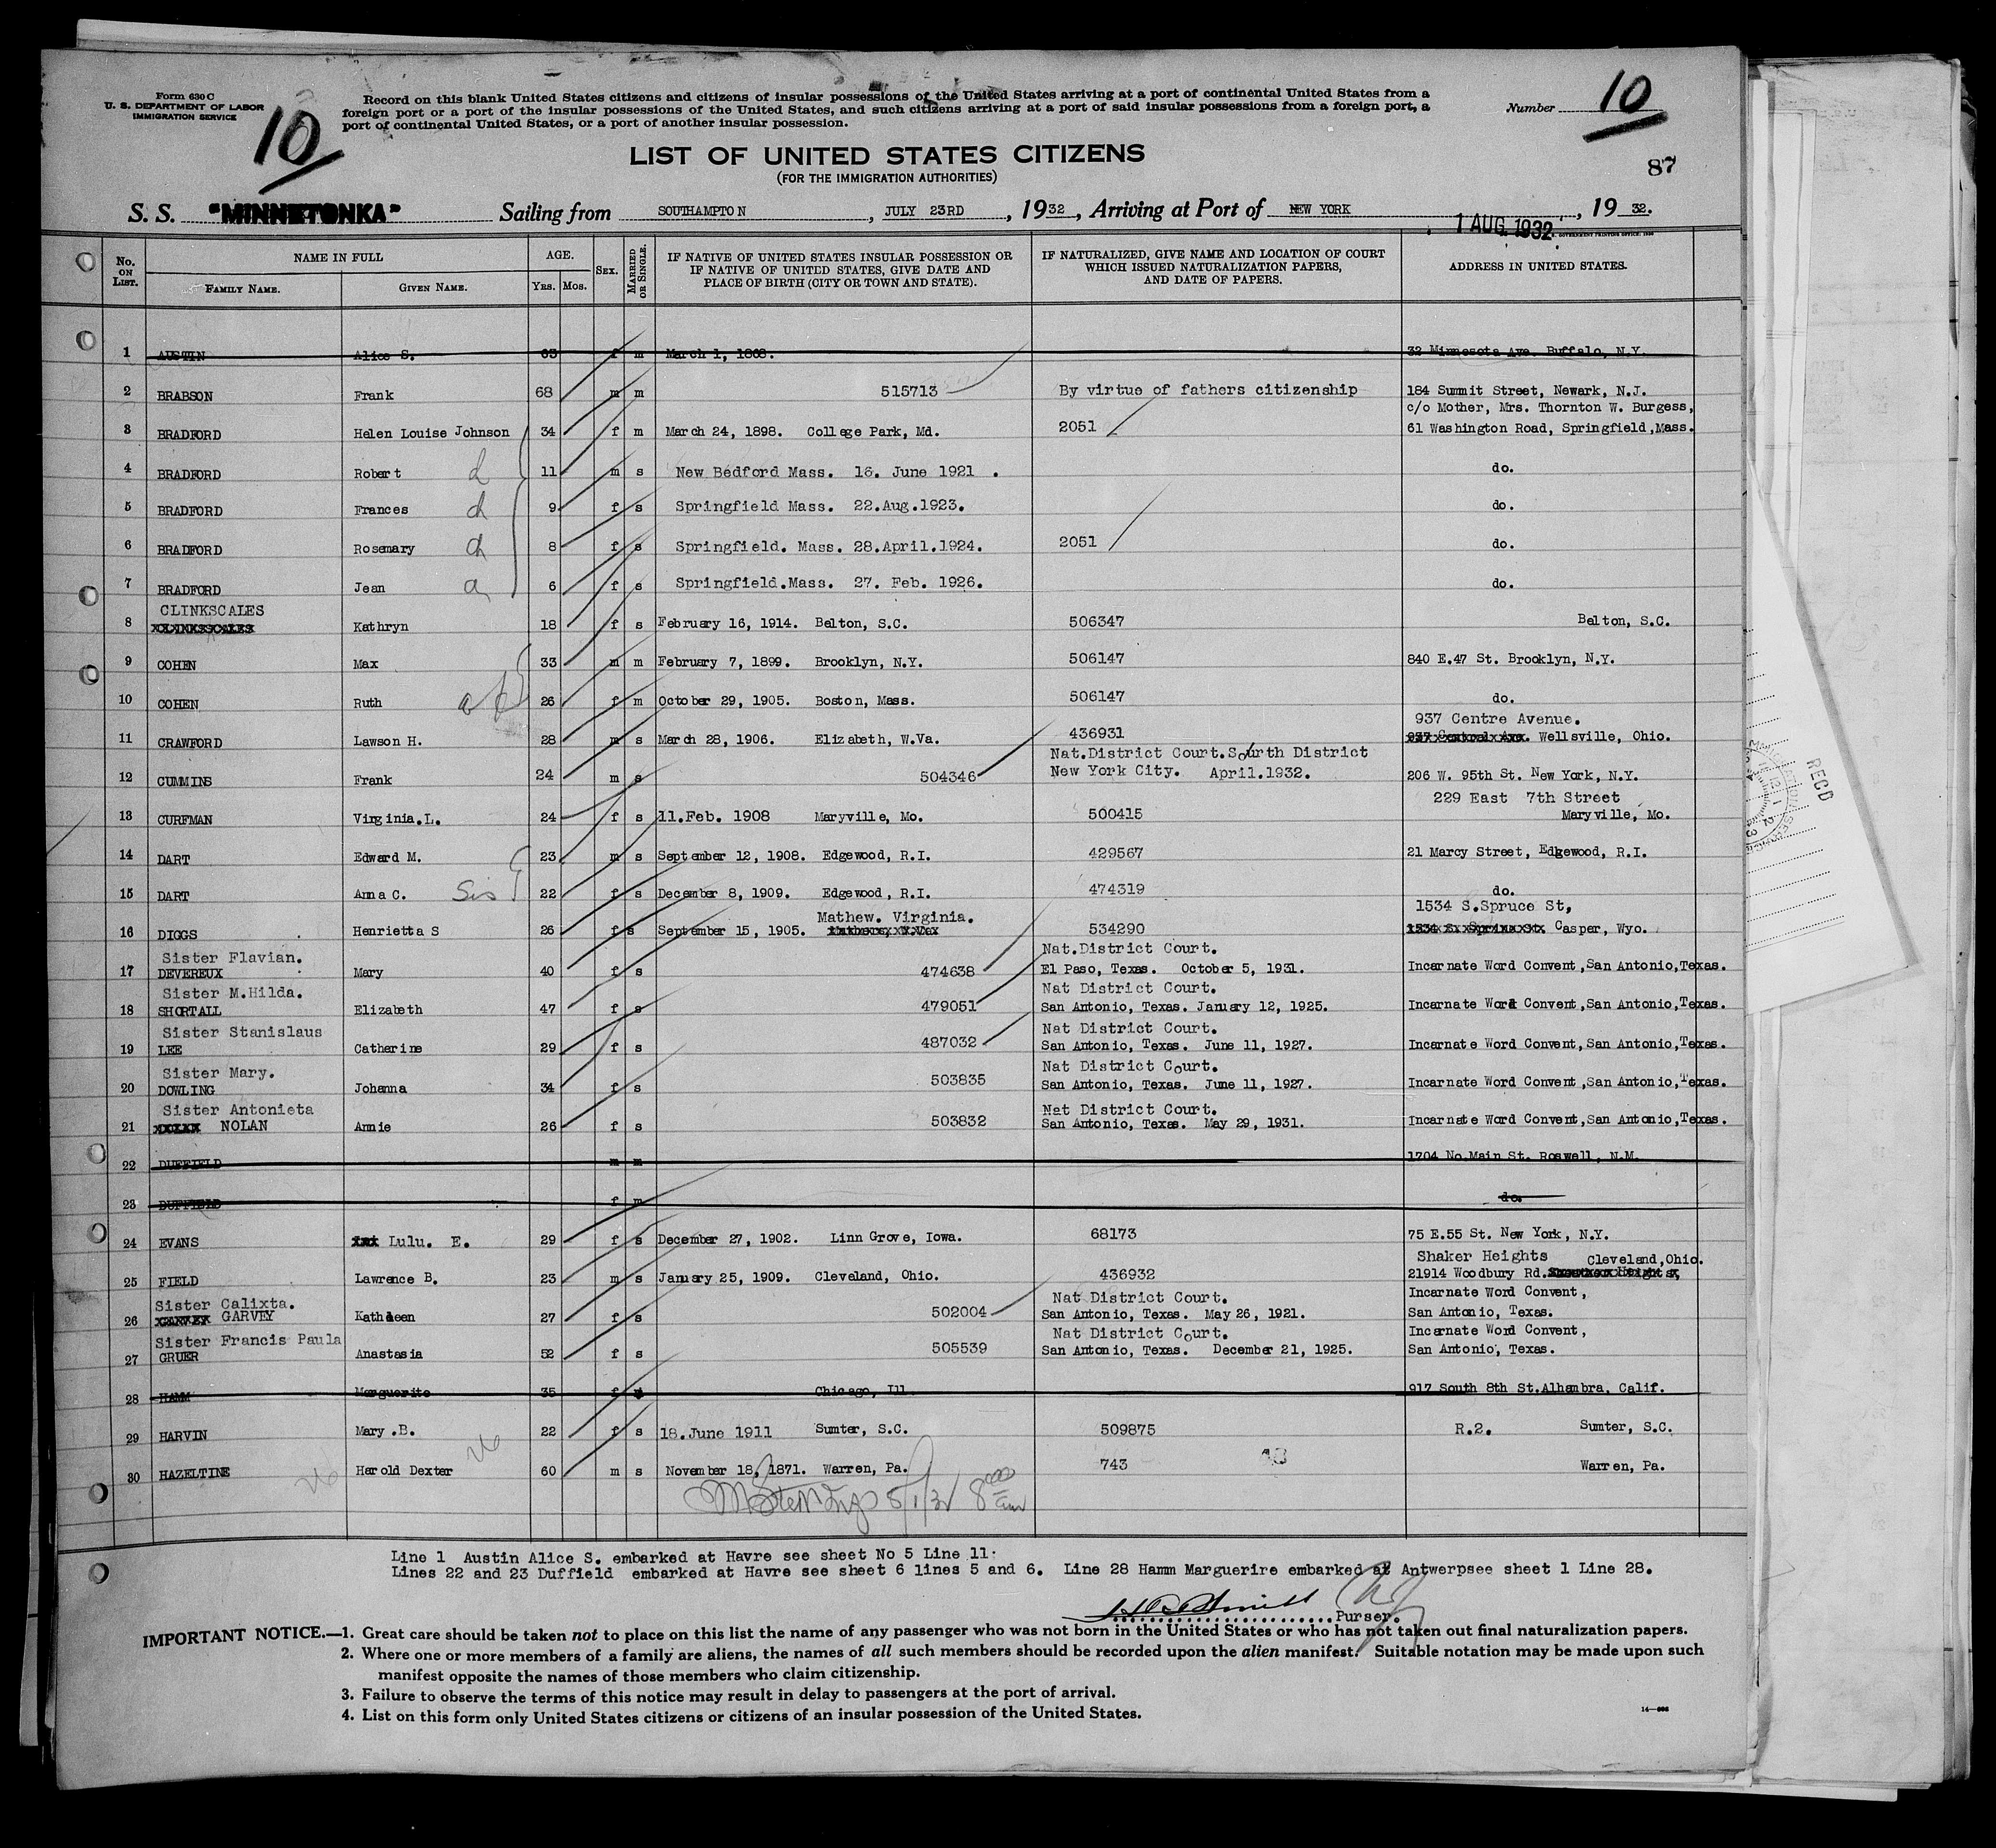 Form 630 C
U. S. DEPARTMENT OF LABOR
IMMIGRATION SERVICE
10
Record on this blank United States citizens and citizens of insular possessions of the United States arriving at a port of continental United States from a
foreign port or a port of the insular possessions of the United States, and such citizens arriving at a port of said insular possessions from a foreign port, a
port of continental United States, or a port of another insular possession.
Number 10
LIST OF UNITED STATES CITIZENS
(FOR THE IMMIGRATION AUTHORITIES)
87
S. S. "MINNETONKA" Sailing from SOUTHAMPTON, JULY 23RD, 1932, Arriving at Port of NEW YORK, 1932.
1 AUG. 1932
No. ON LIST. NAME IN FULL FAMILY NAME. GIVEN NAME. AGE. YRS. MOS. SEX. MARRIED OR SINGLE. IF NATIVE OF UNITED STATES INSULAR POSSESSION OR IF NATIVE OF UNITED STATES, GIVE DATE AND PLACE OF BIRTH (CITY OR TOWN AND STATE). IF NATURALIZED, GIVE NAME AND LOCATION OF COURT WHICH ISSUED NATURALIZATION PAPERS, AND DATE OF PAPERS. ADDRESS IN UNITED STATES.
1 AUSTIN Alice S. 63 f m March 1, 1868. 32 Minnesota Ave. Buffalo, N.Y.
2 BRABSON Frank 68 m m 515713 By virtue of fathers citizenship 184 Summit Street, Newark, N.J.
c/o Mother, Mrs. Thornton W. Burgess,
3 BRADFORD Helen Louise Johnson 34 f m March 24, 1898. College Park, Md. 2051 61 Washington Road, Springfield,Mass.
4 BRADFORD Robert 11 m s New Bedford Mass. 16. June 1921 . do.
5 BRADFORD Frances ch 9 f s Springfield Mass. 22.Aug.1923. do.
6 BRADFORD Rosemary ch 8 f s Springfield. Mass. 28.April.1924. 2051 do.
7 BRADFORD Jean 6 f s Springfield.Mass. 27. Feb. 1926. do.
CLINKSCALES
8 Kathryn 18 f s February 16, 1914. Belton, S.C. 506347 Belton, S.C.
9 COHEN Max 33 m m February 7, 1899. Brooklyn, N.Y. 506147 840 E.47 St. Brooklyn, N.Y.
10 COHEN Ruth 26 f m October 29, 1905. Boston, Mass. 506147 do.
937 Centre Avenue.
11 CRAWFORD Lawson H. 28 m s March 28, 1906. Elizabeth, W.Va. 436931 Wellsville, Ohio.
Nat.District Court.Sourth District
12 CUMMINS Frank 24 m s 504346 New York City. April.1932. 206 W. 95th St. New York, N.Y.
229 East 7th Street
13 CURFMAN Virginia.L. 24 f s 11.Feb. 1908 Maryville, Mo. 500415 Maryville, Mo.
14 DART Edward M. 23 m s September 12, 1908. Edgewood, R.I. 429567 21 Marcy Street, Edgewood, R.I.
15 DART Anna C. Sis 22 f s December 8, 1909. Edgewood, R.I. 474319 do.
Mathew. Virginia. 1534 S.Spruce St,
16 DIGGS Henrietta S 26 f s September 15, 1905. 534290 Casper, Wyo.
Sister Flavian. Nat.District Court.
17 DEVEREUX Mary 40 f s 474638 El Paso, Texas. October 5, 1931. Incarnate Word Convent,San Antonio,Texas.
Sister M.Hilda. Nat District Court.
18 SHORTALL Elizabeth 47 f s 479051 San Antonio, Texas. January 12, 1925. Incarnate Word Convent,San Antonio,Texas.
Sister Stanislaus Nat District Court.
19 LEE Catherine 29 f s 487032 San Antonio, Texas. June 11, 1927. Incarnate Word Convent,San Antonio,Texas.
Sister Mary. Nat District Court.
20 DOWLING Johanna 34 f s 503835 San Antonio, Texas. June 11, 1927. Incarnate Word Convent,San Antonio,Texas.
Sister Antonieta Nat District Court.
21 NOLAN Annie 26 f s 503832 San Antonio, Texas. May 29, 1931. Incarnate Word Convent,San Antonio,Texas.
22 DUFFIELD m m 1704 No.Main St. Roswell, N.M.
23 DUFFIELD f m do.
24 EVANS Lulu. E. 29 f s December 27, 1902. Linn Grove, Iowa. 68173 75 E.55 St. New York, N.Y.
Shaker Heights Cleveland,Ohio.
25 FIELD Lawrence B. 23 m s January 25, 1909. Cleveland, Ohio. 436932 21914 Woodbury Rd.
Sister Calixta. Nat District Court. Incarnate Word Convent,
26 GARVEY Kathleen 27 f s 502004 San Antonio, Texas. May 26, 1921. San Antonio, Texas.
Sister Francis Paula Nat District Court. Incarnate Word Convent,
27 GRUER Anastasia 52 f s 505539 San Antonio, Texas. December 21, 1925. San Antonio, Texas.
28 HAMM Marguerite 35 f Chicago, Ill. 917 South 8th St.Alhambra, Calif.
29 HARVIN Mary .B. 22 f s 18.June 1911 Sumter, S.C. 509875 R.2. Sumter, S.C.
30 HAZELTINE Harold Dexter 60 m s November 18, 1871. Warren, Pa. 743 Warren, Pa.
Line 1 Austin Alice S. embarked at Havre see sheet No 5 Line 11.
Lines 22 and 23 Duffield embarked at Havre see sheet 6 lines 5 and 6. Line 28 Hamm Marguerire embarked at Antwerpsee sheet 1 Line 28.
Purser.
IMPORTANT NOTICE.—1. Great care should be taken not to place on this list the name of any passenger who was not born in the United States or who has not taken out final naturalization papers.
2. Where one or more members of a family are aliens, the names of all such members should be recorded upon the alien manifest. Suitable notation may be made upon such
manifest opposite the names of those members who claim citizenship.
3. Failure to observe the terms of this notice may result in delay to passengers at the port of arrival.
4. List on this form only United States citizens or citizens of an insular possession of the United States.
RECD